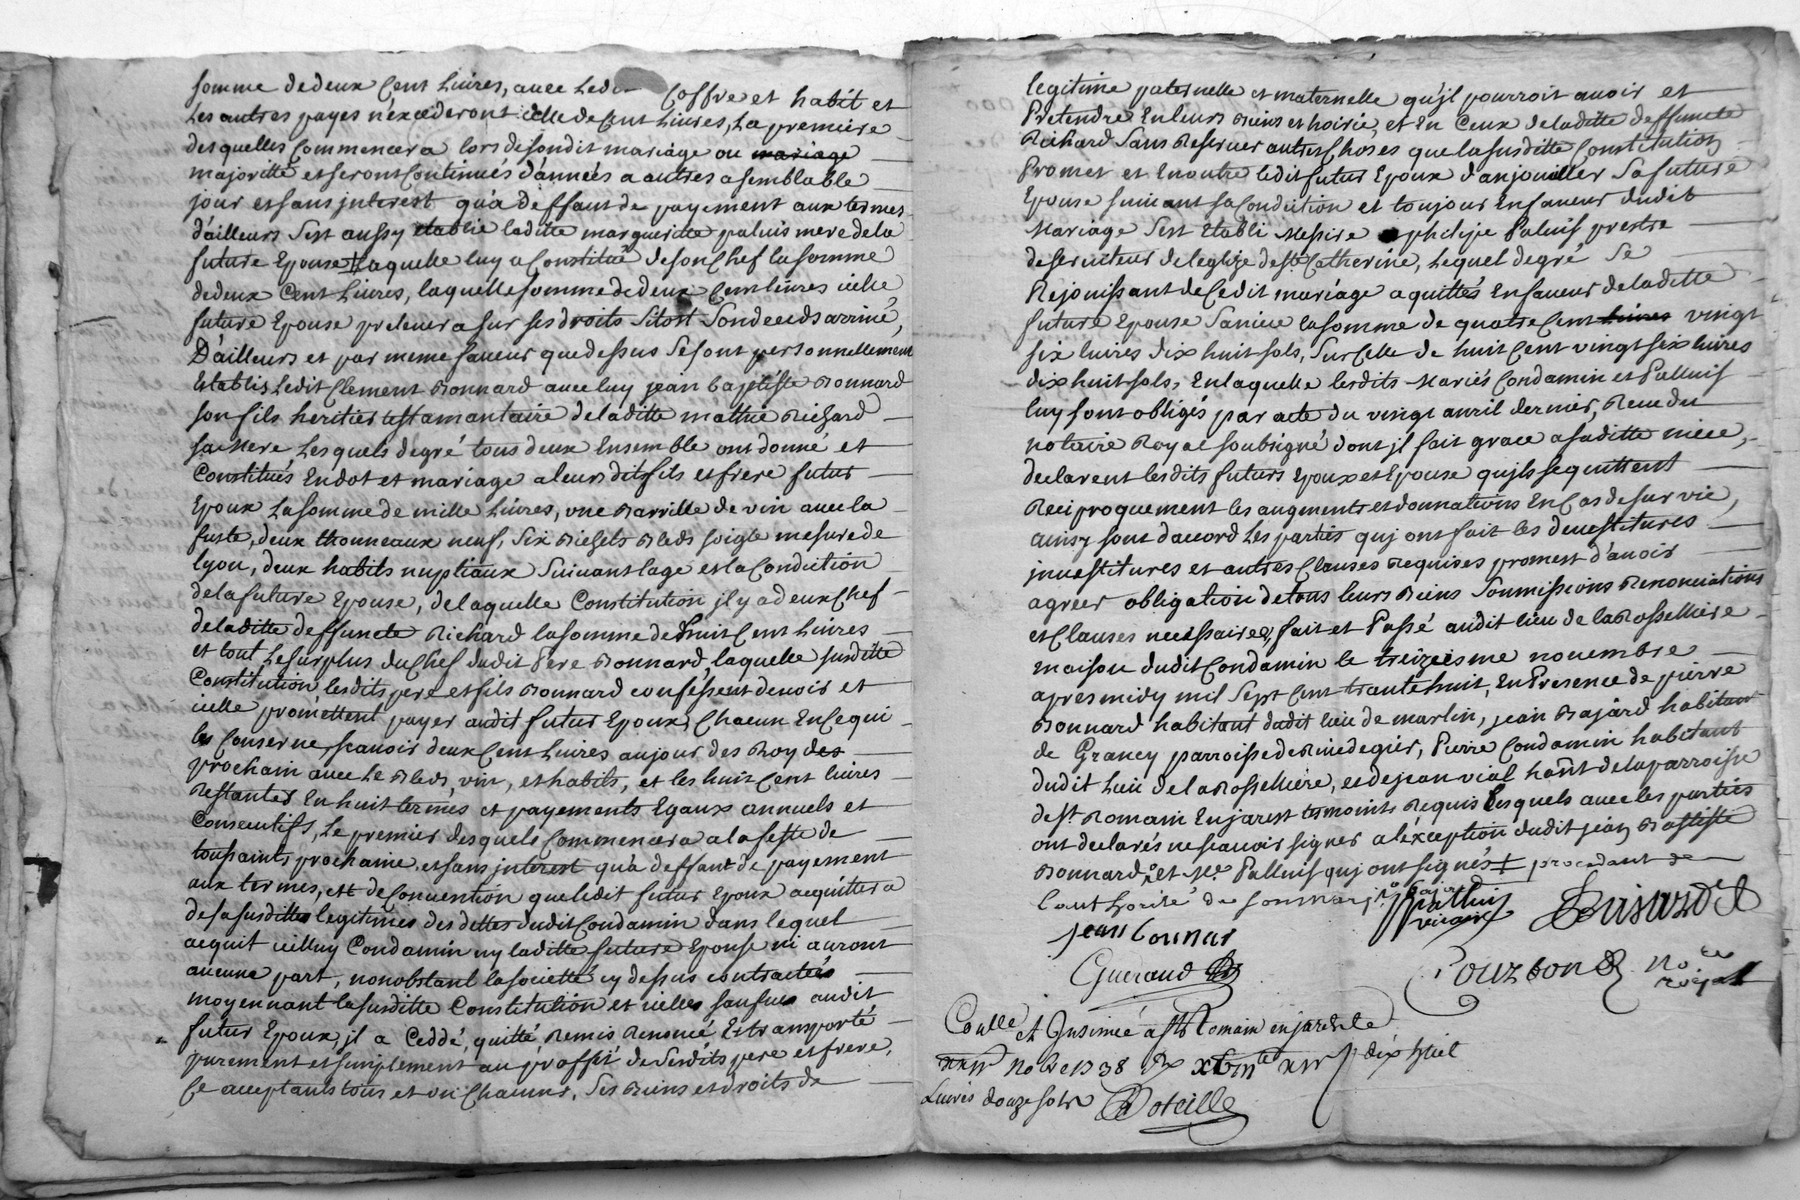 somme de deux Cent Livres, avec Led Coffre et habit et
Les autres payes n'excederont celle de Cent Livres, La premiere
desquelles Commencera lors de son dit mariage ou mariage
majorité et seront Continués d'années a autres a semblable
jour et sans jnterest qu'a deffaut de payement aux termes
d'ailleurs s'est aussy etablie ladite marguerite paluis mere de la
future Epouse Laquelle luy a Constitué de son Chef la somme
de deux Cent Livres, laquelle somme de deux Cent livres icelle
future Epouse prelevera sur ses droits sitost son deceds arrivé,
D'ailleurs et par meme faveur que dessus se sont personnellement
Etablis Ledit Clement Bonnard avec luy jean baptiste Bonnard
son fils heritier testamantaire de laditte mathie Richard
sa Mere Lesquels de gré tous deux Ensemble ont donné et
Constitués En dot et mariage a leurs dits fils et frere futur
Epoux La somme de mille Livres, vne Barrille de vin avec la
fuste, deux thonneaux neuf, Six Bichets Bled soigle mesure de
lyon, deux habits nuptiaux suivant lage et la Condition
de la future Epouse, de laquelle Constitution jl y a deu Chef
de laditte deffuncte Richard la somme de huit Cent Livres
et tout Le surplus du Chef dudit Pere Bonnard, laquelle susditte
Constitution lesdits pere et fils Bonnard confessent devoir et
icelle promettent payer audit futur Epoux, Chacun En Ce qui
les Conserne scauoir deux Cent Livres au jour des Roy des
prochain avec Le Bled, vin, et habits, et les huit Cent livres
Restantes En huit termes et payements Egaux annuels et
Consecutifs, Le premier desquels Commencera a la feste de
toussaints prochaine et sans jnterest qu'a deffaut de payement
aux termes, est de Convention que ledit futur Epoux acquittera
de sa susdittes legitimes des dettes dudit Condamin dans lequel
acquit icelluy Condamin ny laditte future Epouse ni auront
aucune part, nonobstant la societté cy dessus contractée
moyennant la susditte Constitution et icelle sauf audit
futur Epoux, jl a Ceddé, quitté Remis Renoncé Et transporté
purement et simplement au proffit de Sesdits pere et frere,
Ce acceptants tous et vn Chacuns, Ses Biens et droits de
legitime paternelle et maternelle qu'jl pourroit avoir et
Pretendre En leurs Biens et hoirie, et En Ceux de laditte deffuncte
Richard Sans Reserver autres Choses que la susditte Constitution
Promet et En outre ledit futur Epoux d'anjoualler Sa future
Epouse suivant sa Condition et toujour En faveur dudit
Mariage s'est Etabli Messire philipe Palluis prestre
desserviteur de leglize de Ste Catherine, Lequel de gré Se
Rejouissant de Cedit mariage a quittés En faveur de laditte
future Epouse sa niece la somme de quatre Cent livres vingt
six livres dix huit sols, sur Celle de huit Cent vingt six livres
dix huit sols, En laquelle lesdits Mariés Condamin et Palluis
luy sont obligés par acte du vingt avril dernier, Receu du
notaire Royal soubsigné dont jl fait grace a saditte niece,
declarent lesdits futurs Epoux et Epouse qu'jls sequittent
Reciproquement les augments et donnations En Cas de survie,
ainsy sont d'accord Les parties quj ont fait les devestitures
jnvestitures et autres Clauses Requises promest d'avoir
agreer obligation de tous leurs Biens Soumissions Renonciations
et Clauses necessaires, fait et Passé audit lieu de la Rosselliere
maison dudit Condamin le treizeiesme novembre
apres midy mil Sept Cent trante huit, En Presence de pierre
Bonnard habitant dudit lieu de marlin, jean Bajard habitant
de Grancy parroisse de Rivedegier, Pierre Condamin habitant
dudit Lieu de la Rosselliere, et de jean vial habt de la parroisse
de st Romain En jarest temoints Requis Lesquels avec les parties
ont declarés ne scavoir signer a léxception dudit jean Baptiste
Bonnard, et Mre Palluis quj ont signés + procedant de
lauthorité de son
Palluis
vicaire
jean bonnar
Gueraud
Pouzbon No re
royal
Collé et Insinué a st Romain en jarest le
xxiv No bre 1738 dix huit
Livres douze sols Doteille